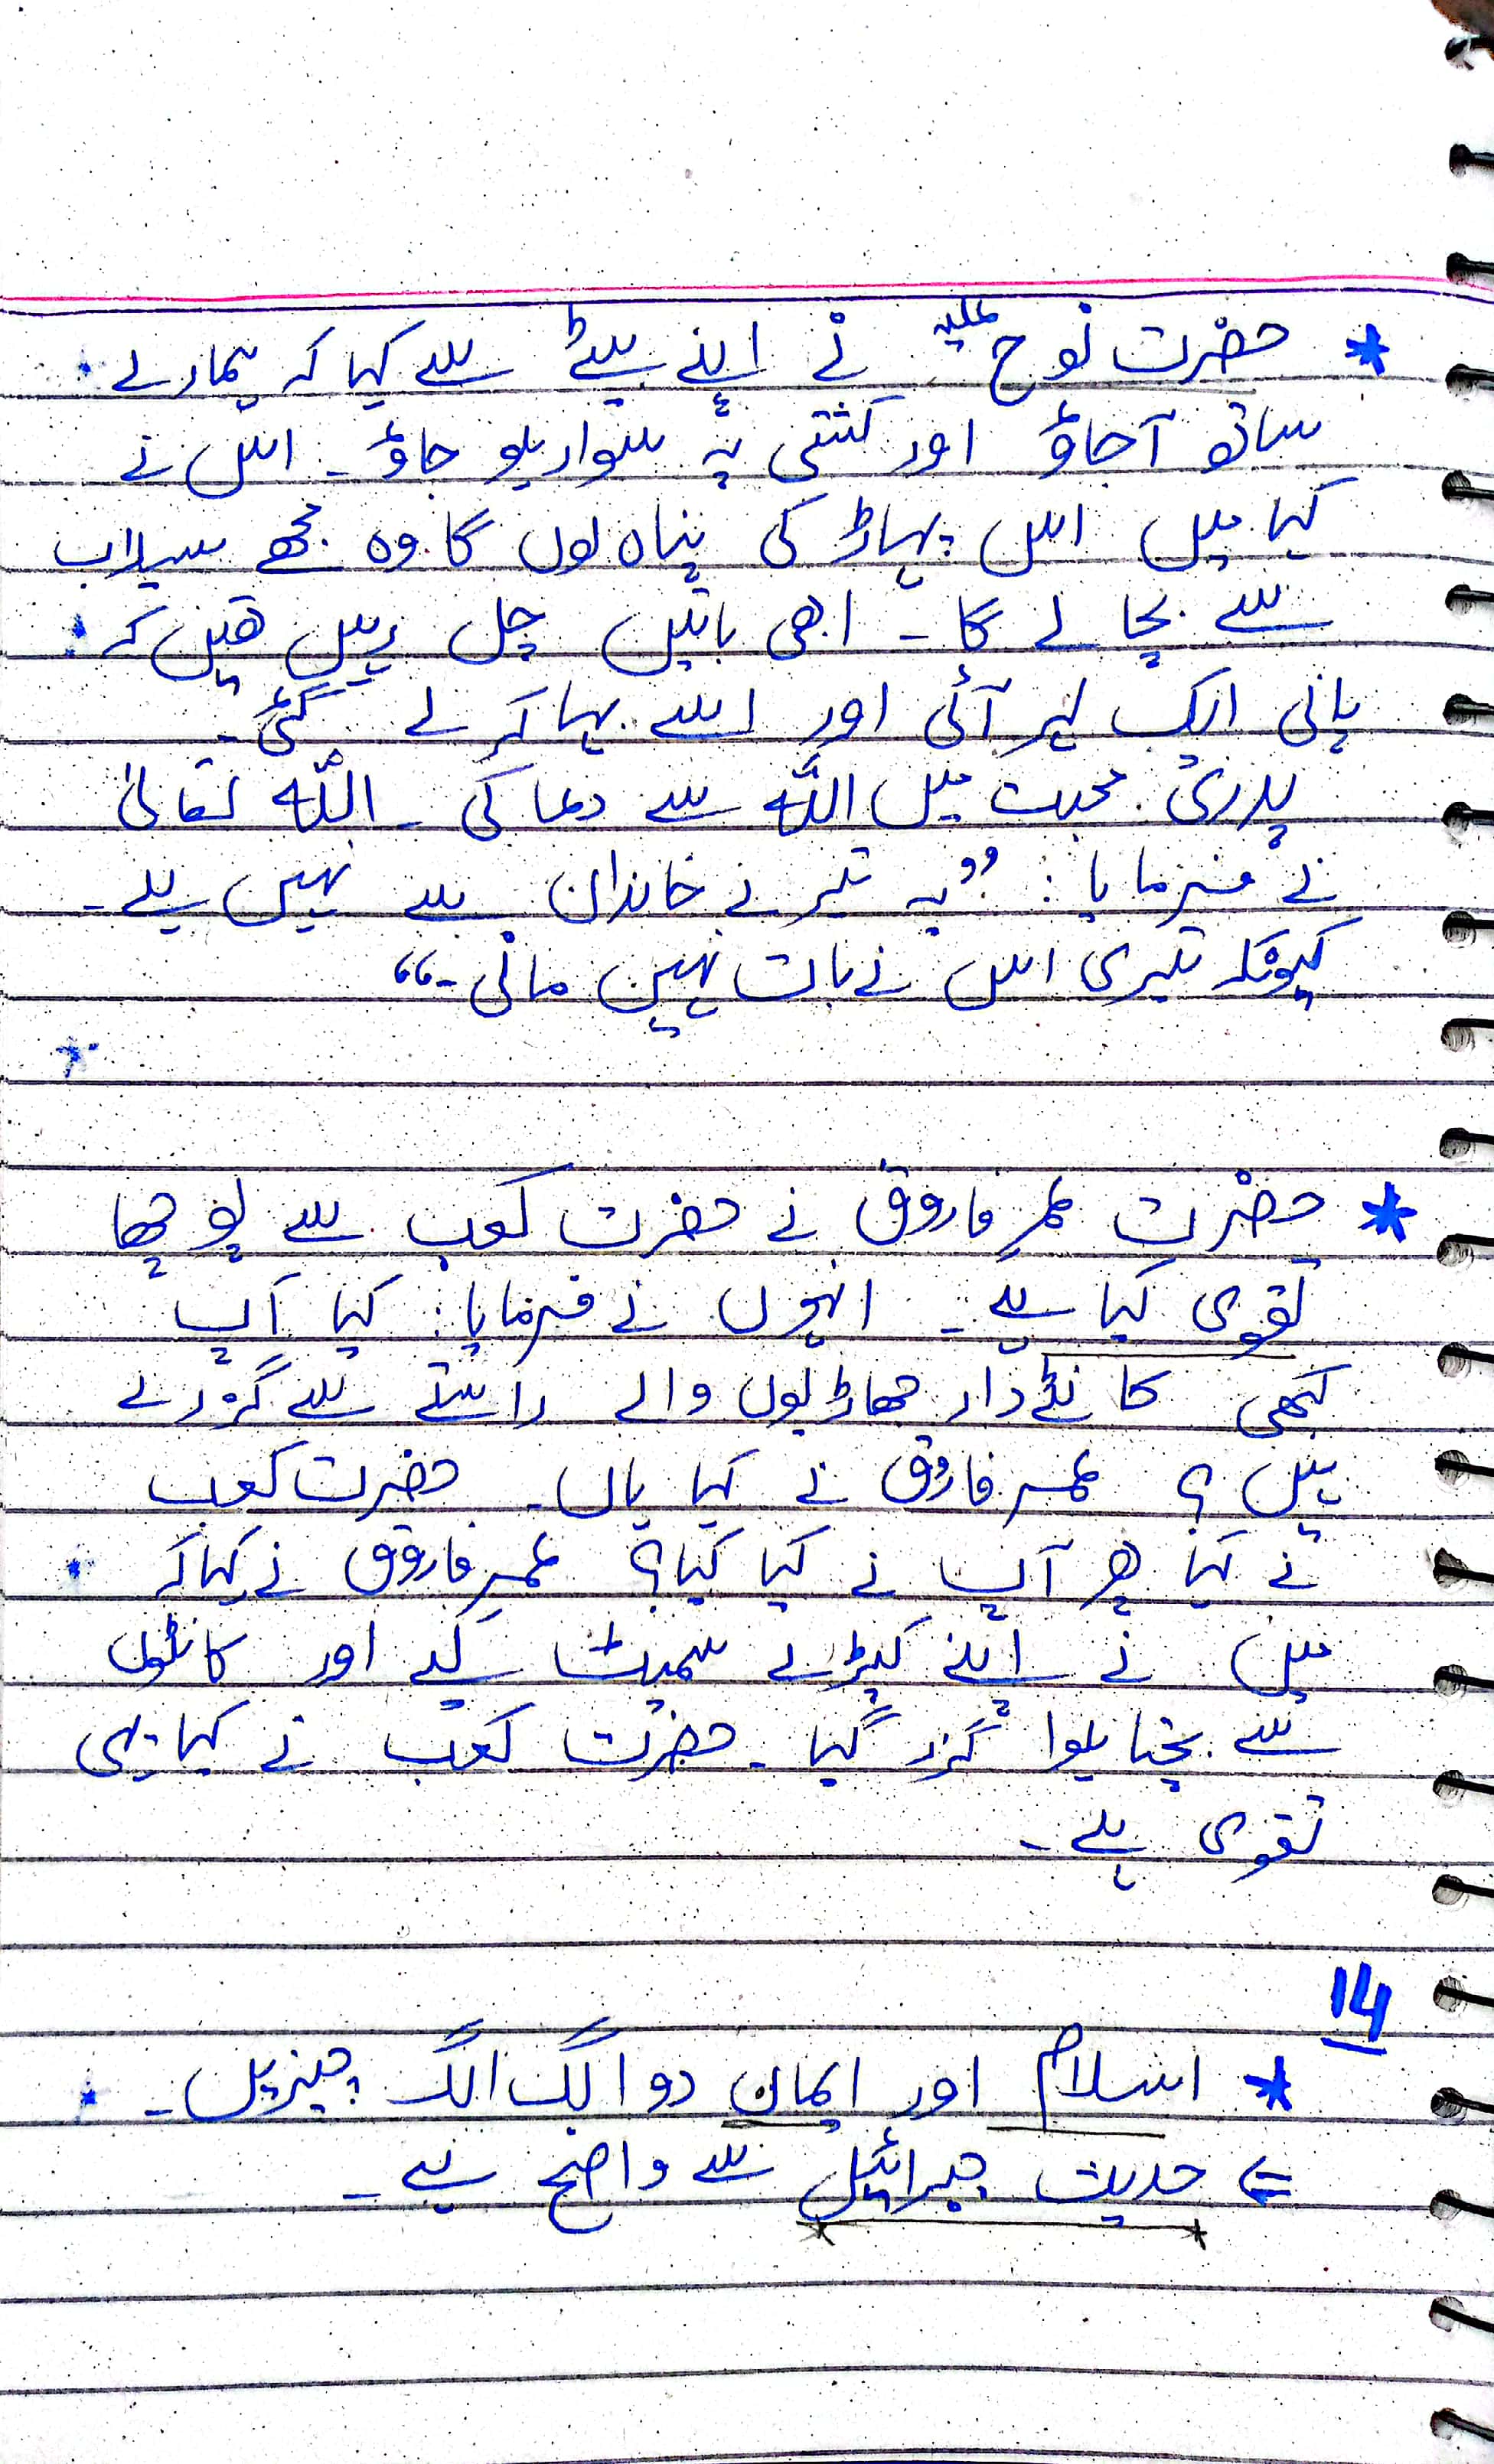 * حضرت نوح علیہ نے اپنے بیٹے سے کہا کہ ہمارے
ساتھ آجاؤ اور کشتی پہ سوار ہو جاؤ۔ اس نے
کہا میں اس پہاڑ کی پناہ لوں گا وہ مجھے سیلاب
سے بچا لے گا۔ ابھی باتیں چل رہیں تھیں کہ
پانی ایک لہر آئی اور اسے بہا کر لے گئی۔
پدری محبت میں اللہ سے دعا کی۔ اللہ تعالیٰ
نے فرمایا: ”یہ تیرے خاندان سے نہیں ہے۔
کیونکہ تیری اس نے بات نہیں مانی۔“
* حضرت عمر فاروق نے حضرت کعب سے پوچھا
تقوی کیا ہے۔ انہوں نے فرمایا: کیا آپ
کبھی کانٹے دار جھاڑیوں والے راستے سے گزرے
ہیں؟ عمر فاروق نے کہا ہاں۔ حضرت کعب
نے کہا پھر آپ نے کیا کیا؟ عمر فاروق نے کہا کہ
میں نے اپنے کپڑے سمیٹ لیے اور کانٹوں
سے بچتا ہوا گزر گیا۔ حضرت کعب نے کہا یہی
تقوی ہے۔
14
* اسلام اور ایمان دو الگ الگ چیزیں۔
⇐ حدیث جبرائیل سے واضح ہے۔